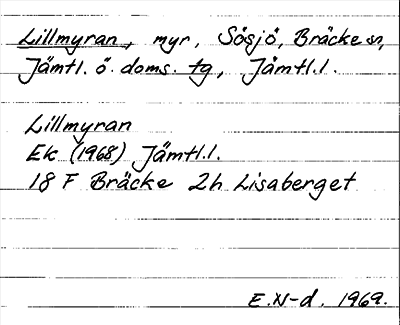 Lillmyran, myr, Sösjö, Bräcke sn,
Jämtl. ö. doms. tg, Jämtl.l.
Lillmyran
Ek (1968) Jämtl.l.
18 F Bräcke 2h Lisaberget
E.N-d. 1969.